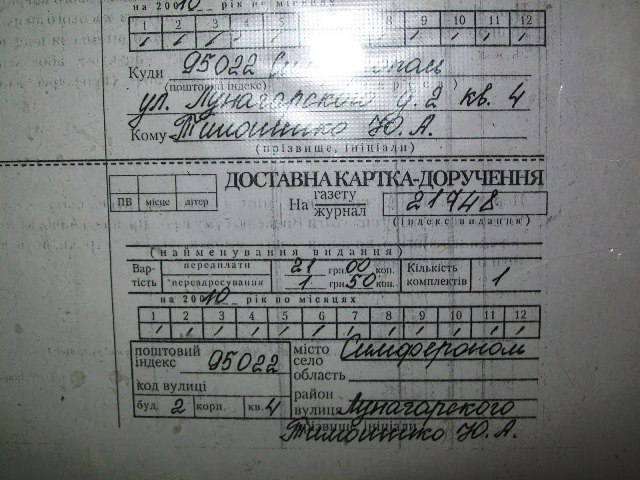 на 20010 рік по місяцях
1 2 3 4 8 9 10 11 12
Куди 95022
(поштовий індекс)
ул. Луначарского д. 2 кв. 4
Кому Тимошитко Ю. А.
(прізвище, ініціали)
ДОСТАВНА КАРТКА-ДОРУЧЕННЯ
ПВ місце літер
На газету журнал 21948
(індекс видання)
(найменування видання)
Вартість передплати 21 грн. 00 коп. Кількість комплектів 1
переадресування 1 грн. 50 коп.
на 20010 рік по місяцях
1 2 3 4 5 6 7 8 9 10 11 12
поштовий індекс 95022
код вулиці
буд. 2 корп. кв. 4
місто Симферопом
село
область
район
вулиця Лунагарского
прізвище, ініціали
Тимошитко Ю. А.